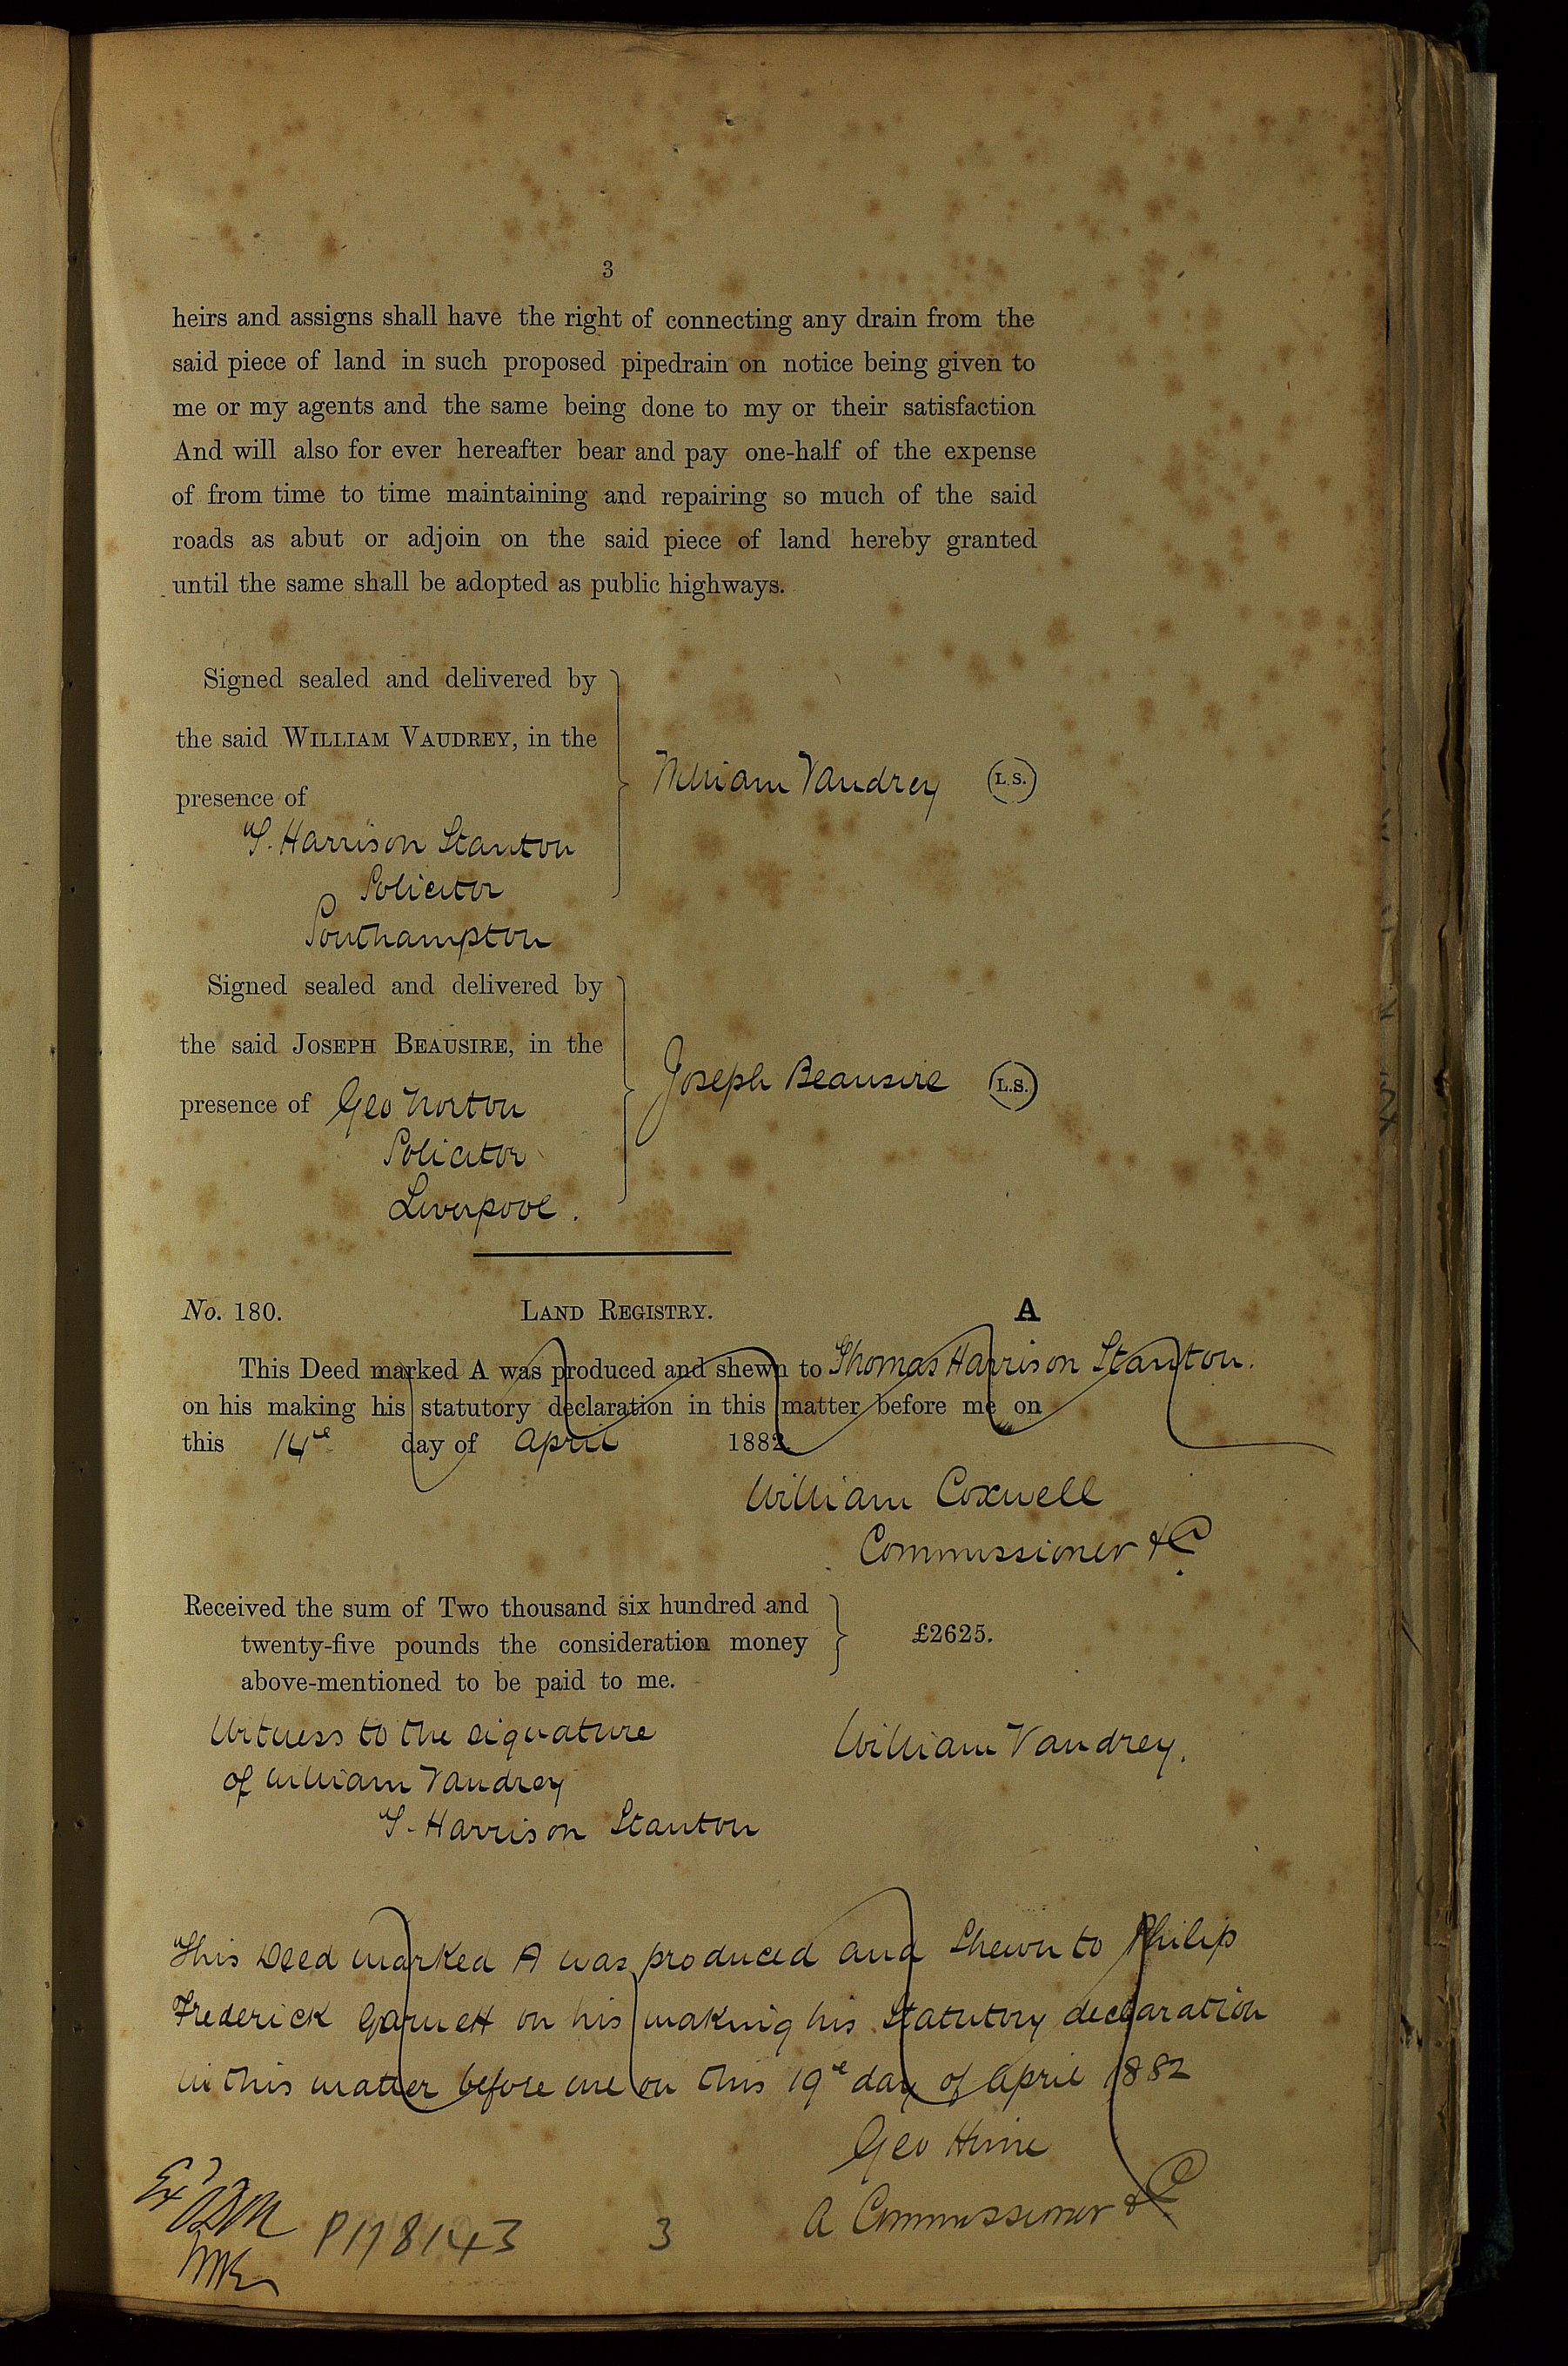 3
heirs and assigns shall have the right of connecting any drain from the
said piece of land in such proposed pipedrain on notice being given to
me or my agents and the same being done to my or their satisfaction
And will also for ever hereafter bear and pay one-half of the expense
of from time to time maintaining and repairing so much of the said
roads as abut or adjoin on the said piece of land hereby granted
until the same shall be adopted as public highways.
Signed sealed and delivered by
the said WILLIAM VAUDREY, in the
presence of
William Vaudrey (L.S.)
T. Harrison Stanton
Solicitor
Southampton
Signed sealed and delivered by
the said JOSEPH BEAUSIRE, in the
presence of Geo Norton
Joseph Beausire (L.S.)
Solicitor
Liverpool.
No. 180. LAND REGISTRY. A
This Deed marked A was produced and shewn to Thomas Harrison Stanton.
on his making his statutory declaration in this matter before me on
this 14e day of April 1882.
William Coxwell
Commissioner &c.
Received the sum of Two thousand six hundred and
twenty-five pounds the consideration money
above-mentioned to be paid to me.
£2625.
Witness to the signature
of William Vaudrey
T. Harrison Stanton
William Vaudrey.
This Deed marked A was produced and Shewn to Philip
Frederick Garnett on his making his Statutory declaration
in this matter before me on this 19e day of April 1882
Geo Hime
A Commissioner &c
Exd
P178143 3